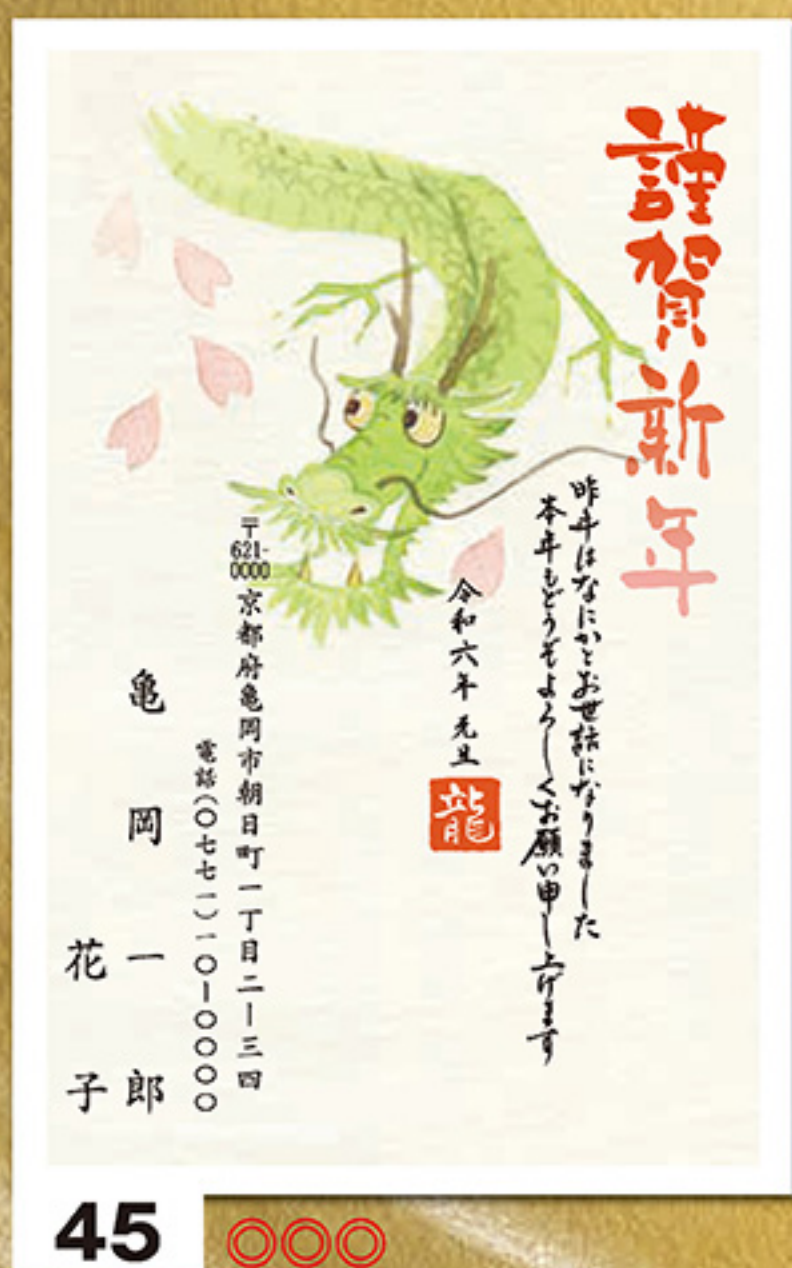 謹賀新年
昨年はなにかとお世話になりました
本年もどうぞよろしくお願い申し上げます
令和六年 元旦
龍
〒621-0000 京都府亀岡市朝日町一丁目二ー三四
電話(〇七七一)一〇ー〇〇〇〇
亀岡 一郎
花子
45
◎◎◎